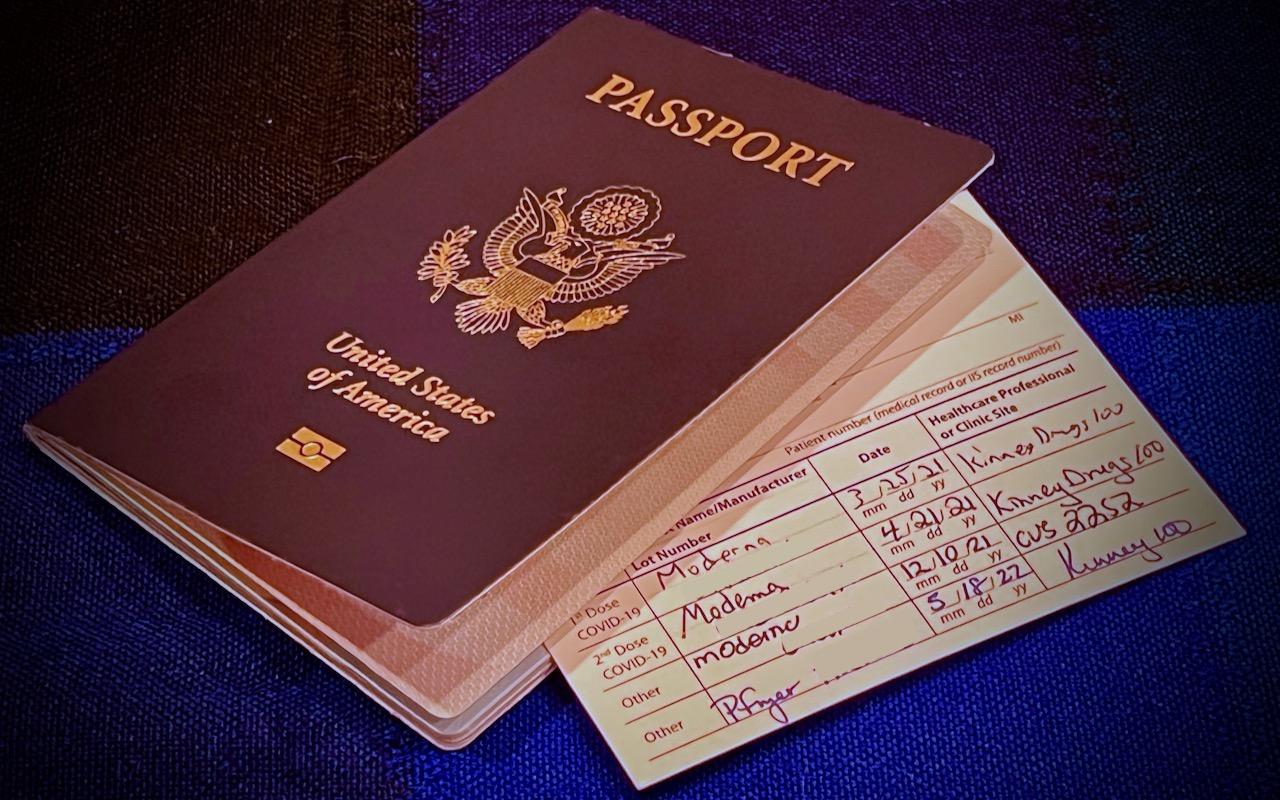 PASSPORT
United States
of America
MI
Patient number (medical record or IIS record number)
Name/Manufacturer
Lot Number
Date
Healthcare Professional
or Clinic Site
1st Dose
COVID-19
Moderna
3/25/21
mm dd yy
Kinney Drugs 100
2nd Dose
COVID-19
Moderna
4/21/21
mm dd yy
Kinney Drugs 100
Other
moderna
12/10/21
mm dd yy
CVS 2252
Other
Pfizer
5/18/22
mm dd yy
Kinney 100